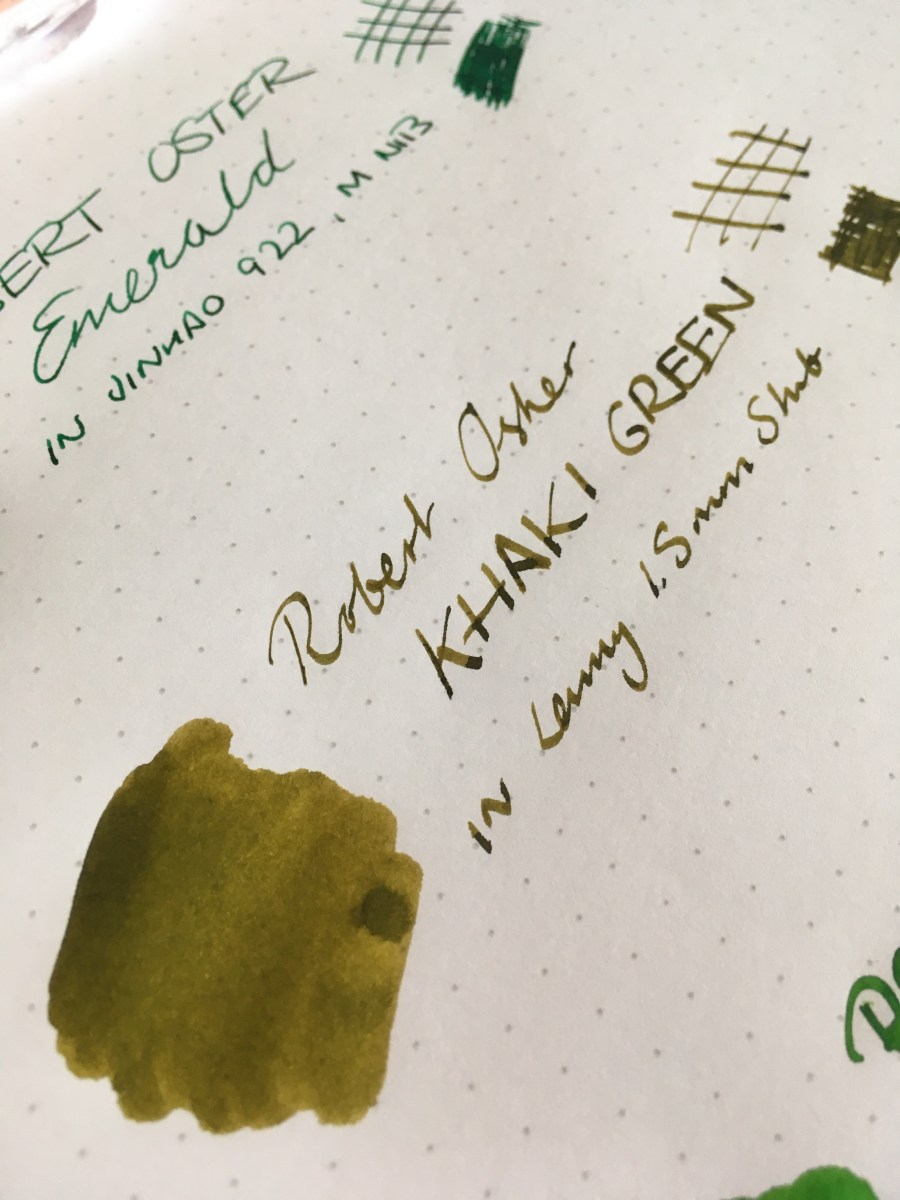 BERT OSTER
Emerald
IN JINHAO 922, M NIB
Robert Oster
KHAKI GREEN
IN Lamy 1.5mm Stub